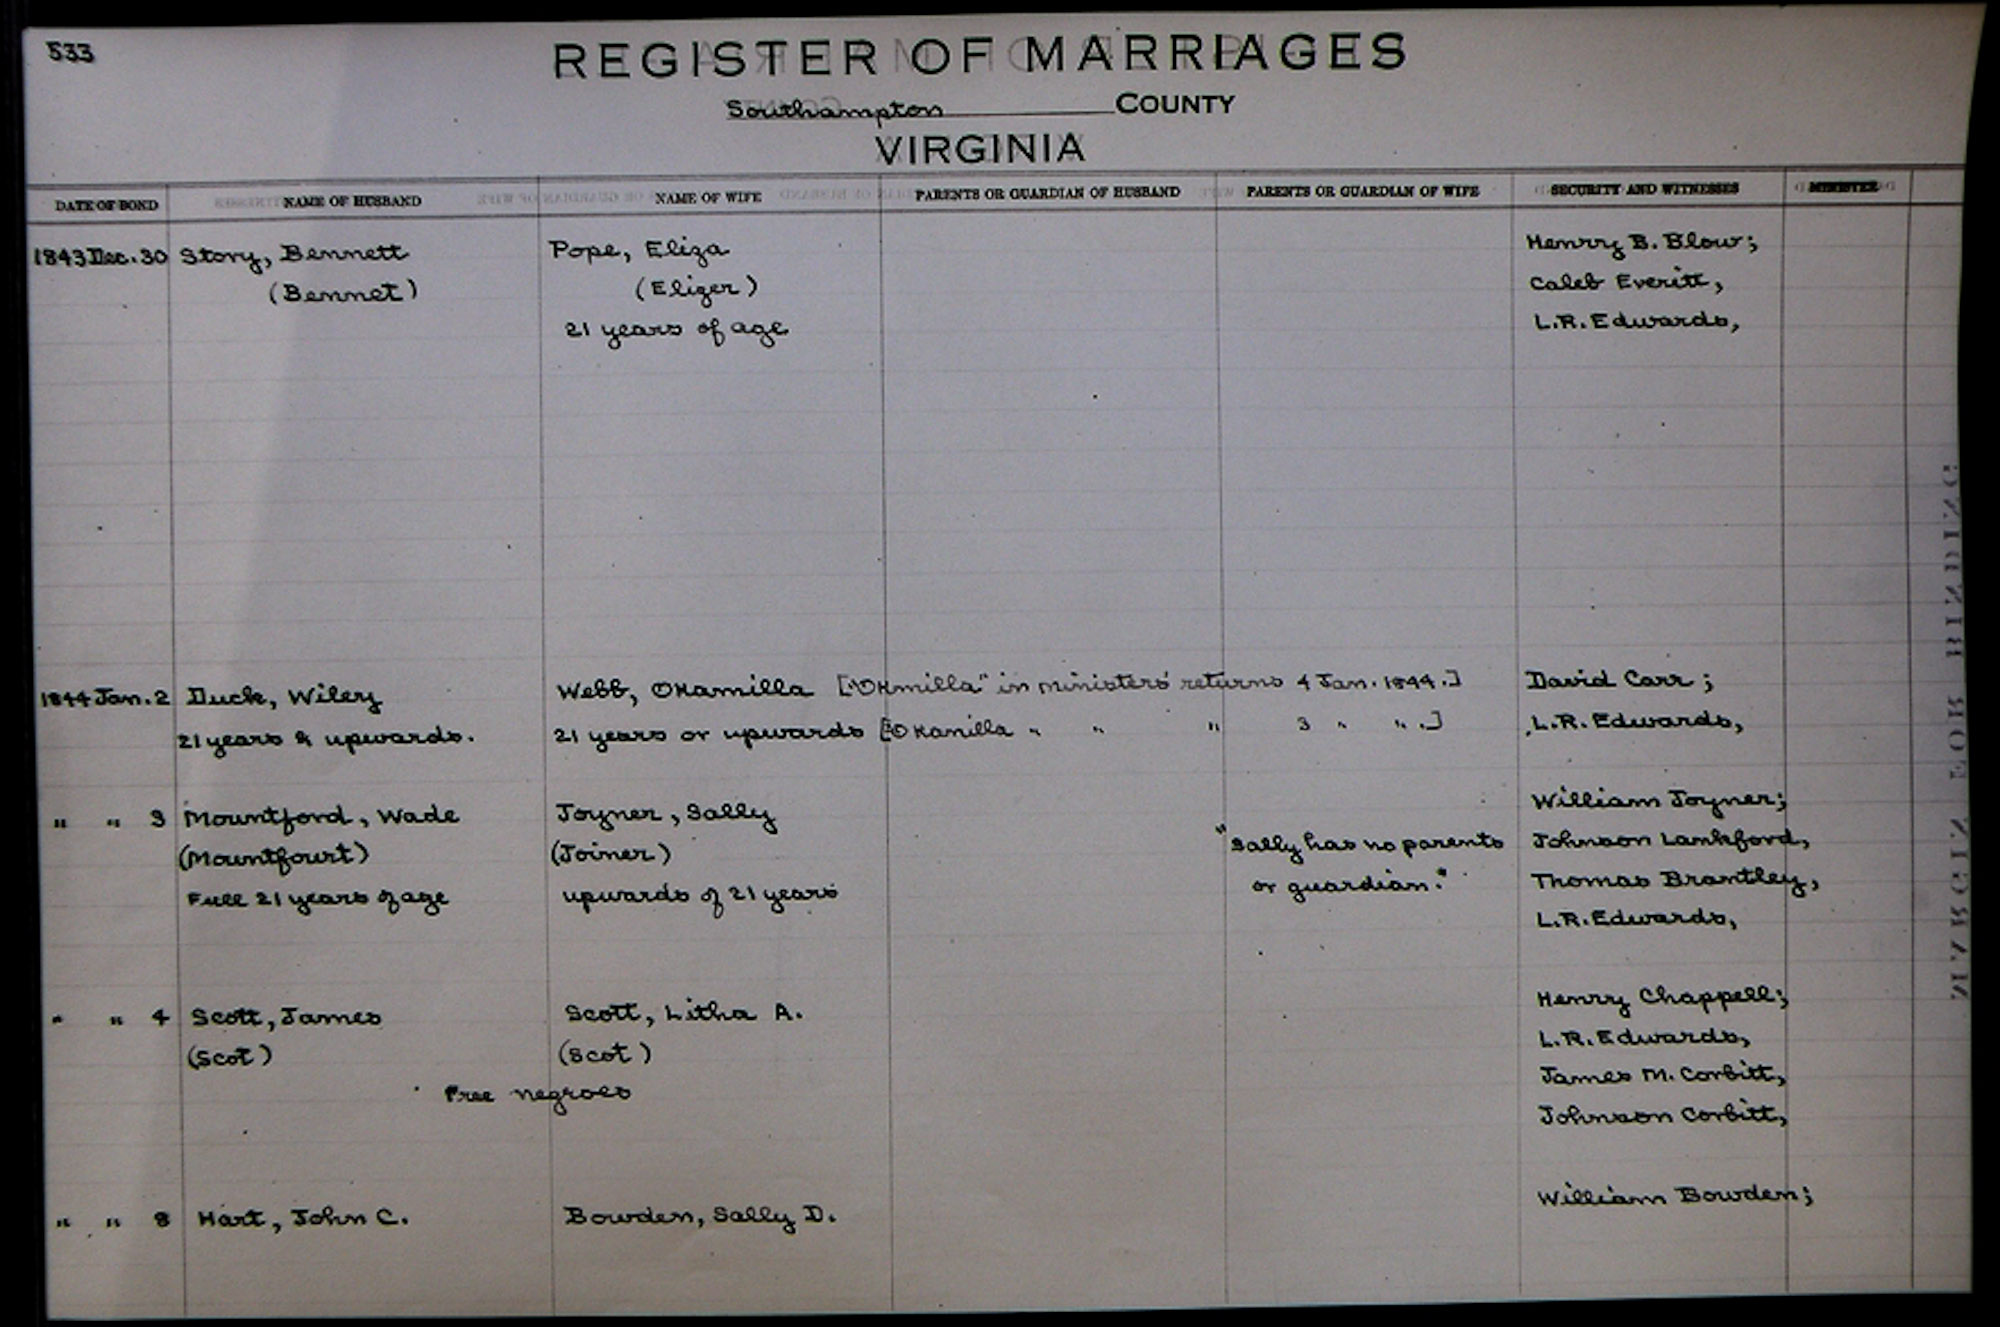 533
REGISTER OF MARRIAGES
Southampton COUNTY
VIRGINIA
DATE OF BOND NAME OF HUSBAND NAME OF WIFE PARENTS OR GUARDIAN OF HUSBAND PARENTS OR GUARDIAN OF WIFE SECURITY AND WITNESSES MINISTER
1843 Dec. 30 Story, Bennett Pope, Eliza Henry B. Blow;
(Bennet) (Elizer) Caleb Everitt,
21 years of age L.R. Edwards,
1844 Jan. 2 Duck, Wiley Webb, OKamilla ["OKmilla" in ministers' returns 4 Jan. 1844.] David Carr;
21 years & upwards. 21 years or upwards [OKamilla " " " 3 " " .] L.R. Edwards,
" " 3 Mountford, Wade Joyner, Sally William Joyner;
(Mountfourt) (Joiner) "Sally has no parents Johnson Lankford,
Full 21 years of age upwards of 21 years or guardian." Thomas Brantley,
L.R. Edwards,
" " 4 Scott, James Scott, Litha A. Henry Chappell;
(Scot) (Scot) L.R. Edwards,
Free negroes James M. Corbitt,
Johnson Corbitt,
" " 8 Hart, John C. Bowden, Sally D. William Bowden;